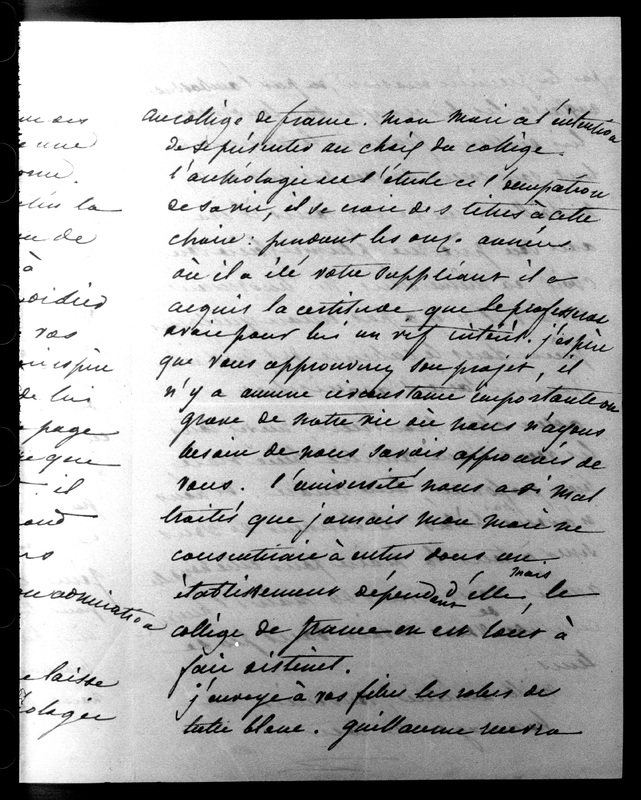 au collège de france. mon mari a l'intention
de se présenter au choix du collège.
l'archéologie est l'étude et l'occupation
de sa vie, il se croit des titres à cette
chaire : pendant les onze années
où il a été votre suppliant il a
acquis la certitude que le professeur
avait pour lui un vif intérêt. j'espère
que vous approuvez son projet, il
n'y a aucune circonstance importante ou
grave de notre vie où nous n'ayons
besoin de nous savoir approuvés de
vous. l'université nous a si mal
traités que jamais mon mari ne
consentirait à entrer dans un
établissement dépendant d'elle, mais le
collège de france en est tout à
fait distinct.
j'envoye à vos filles les robes de
tulle blanc. guillaume
ou de
à
vos
de lui
page
que
il
admiration
laisse